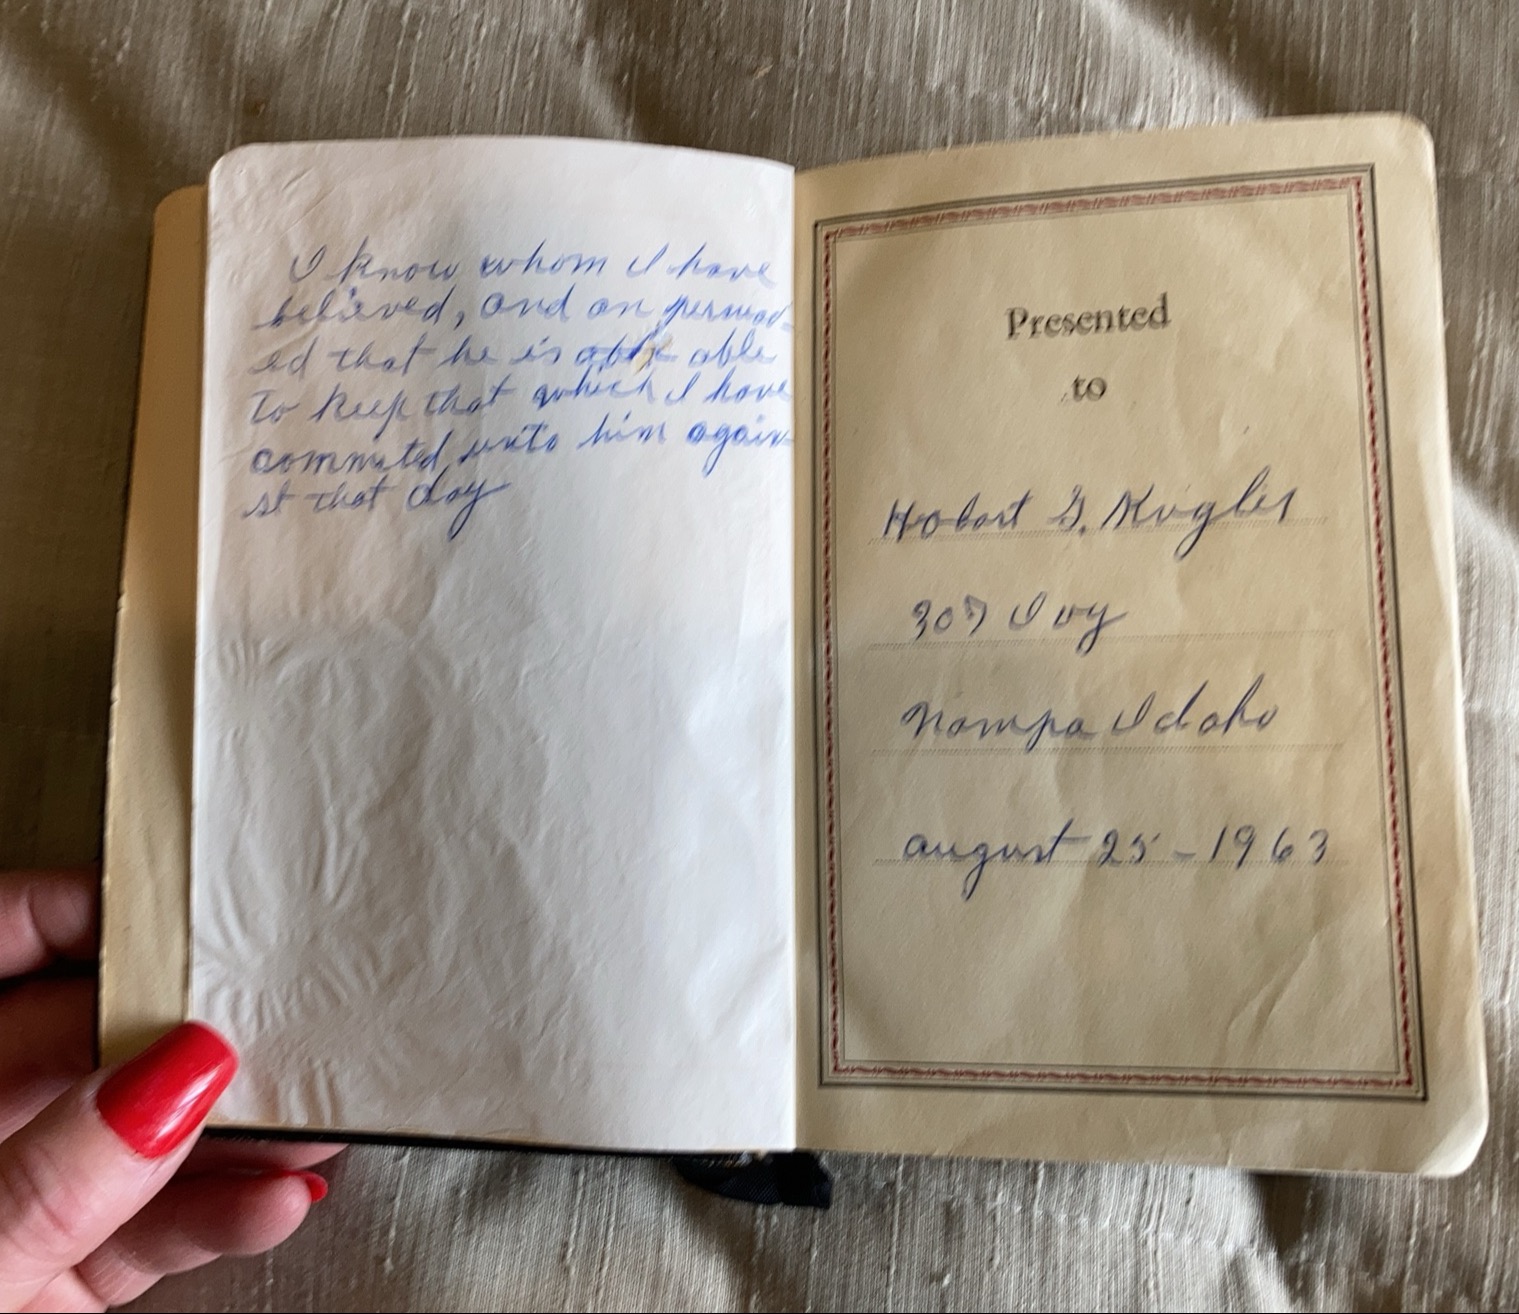 I know whom I have
believed, and an persuad-
ed that he is able able
to keep that which I have
commited unto him again-
st that day
Presented
to
Hobart G. Kugler
307 Ivy
Nampa Idaho
august 25-1963